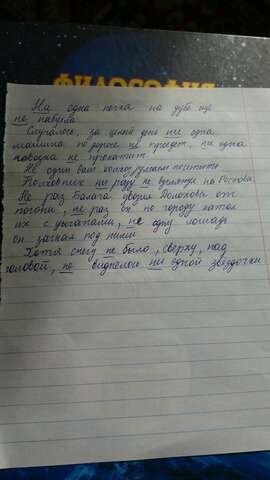 ФИЛОСОФИЯ
Ни одна почка на дубе ще
не лопнула.
Случалось, за целый день ни одна
машина по дороге не пройдет, ни одна
повозка не прокатит.
Не один вам колхоз думает посетить
Полковник ни разу не взглянул на Ростова.
Не раз Балага увозил Долохова от
погони, не раз он по городу катал
их с цыганами, не одну лошадь
он загнал под ними
Хотя снегу не было, сверху, над
головой, не виднелось ни одной звёздочки